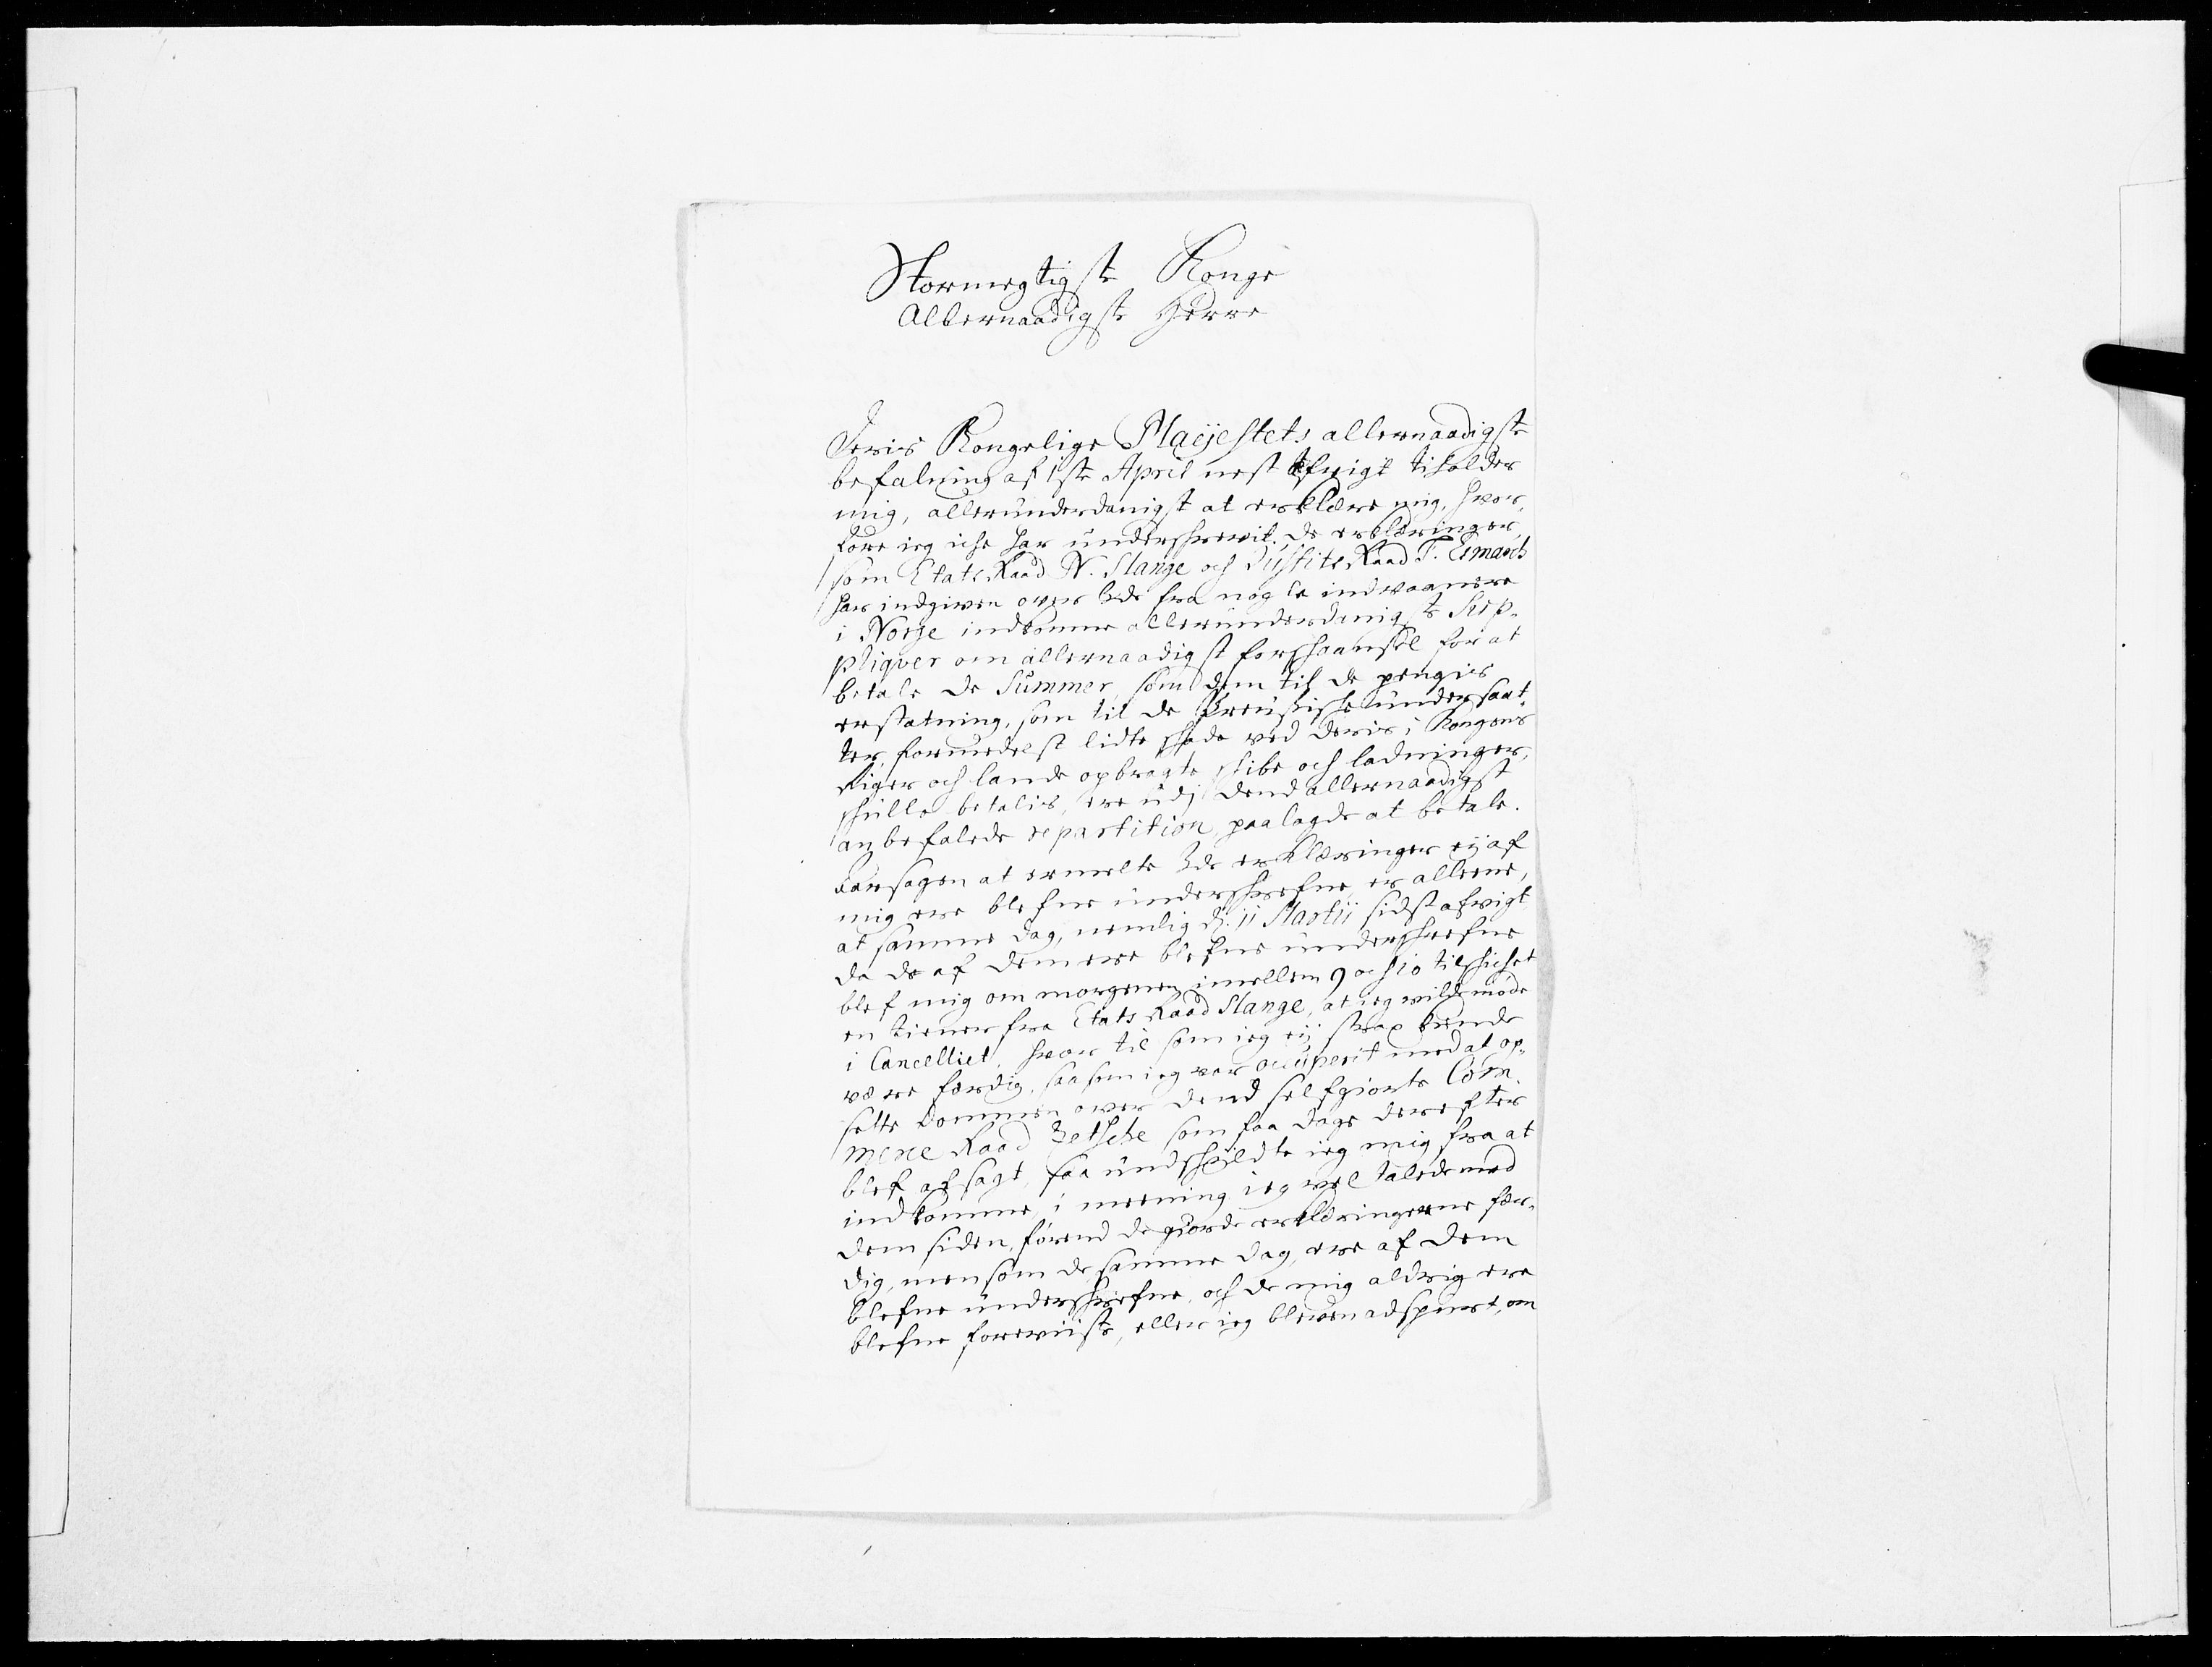 Stormegtigste Konge
Allernaadigste Herre
Deris Kongelige Mayestets allernaadigste
befalning af 1ste April nest afvigt tilholder
mig, allerunderdanigst at erklære mig, hvor,
fore jeg iche har underschrevit de erklæringer,
som Etats Raad N. Slange och Justits Raad T. Esmarch
har indgiven over 3de fra nogle indvaanere
i Norge indkomne allerunderdanigste Sup-
pliqver om allernaadigst forschaansel for at
betale de Summer, som dem til de pengers
erstatning, som til de Preussische undersaat-
ter, formedelst lidte schade ved deris i Kongens
Riger och lande opbragte schibe och ladninger,
schulle betalis, ere udj dend allernaadigst
anbefalede repartition, paalagde at betale.
Aarsagen at ermelte 3de erklæringer ej af
mig ere blefne underschrefne, er alleene,
at samme dag, nemlig d. 11 Martii sidst afvigt,
da de af dem ere blefne underschrefne
blef mig om morgenen imellem 9 och 10 tilschichet
en tiener fra Etats Raad Slange, at jeg vilde møde
i Cancelliet, hvor til som jeg ej strax kunde
være færdig, saasom jeg var occuperit med at op-
sette dommen over dend selfgiorte Com-
merce Raad Zetsche som faa dage derefter
blef afsagt, saa undschyldte jeg mig fra at
indkomme, i meening jeg vel talede med
dem siden, førend de giorde erklæringerne fær-
dig, men som de samme dag, ere af dem
blefne underschrefne, och de mig aldrig ere
blefne foreviiste, eller jeg bleven adspurt, om